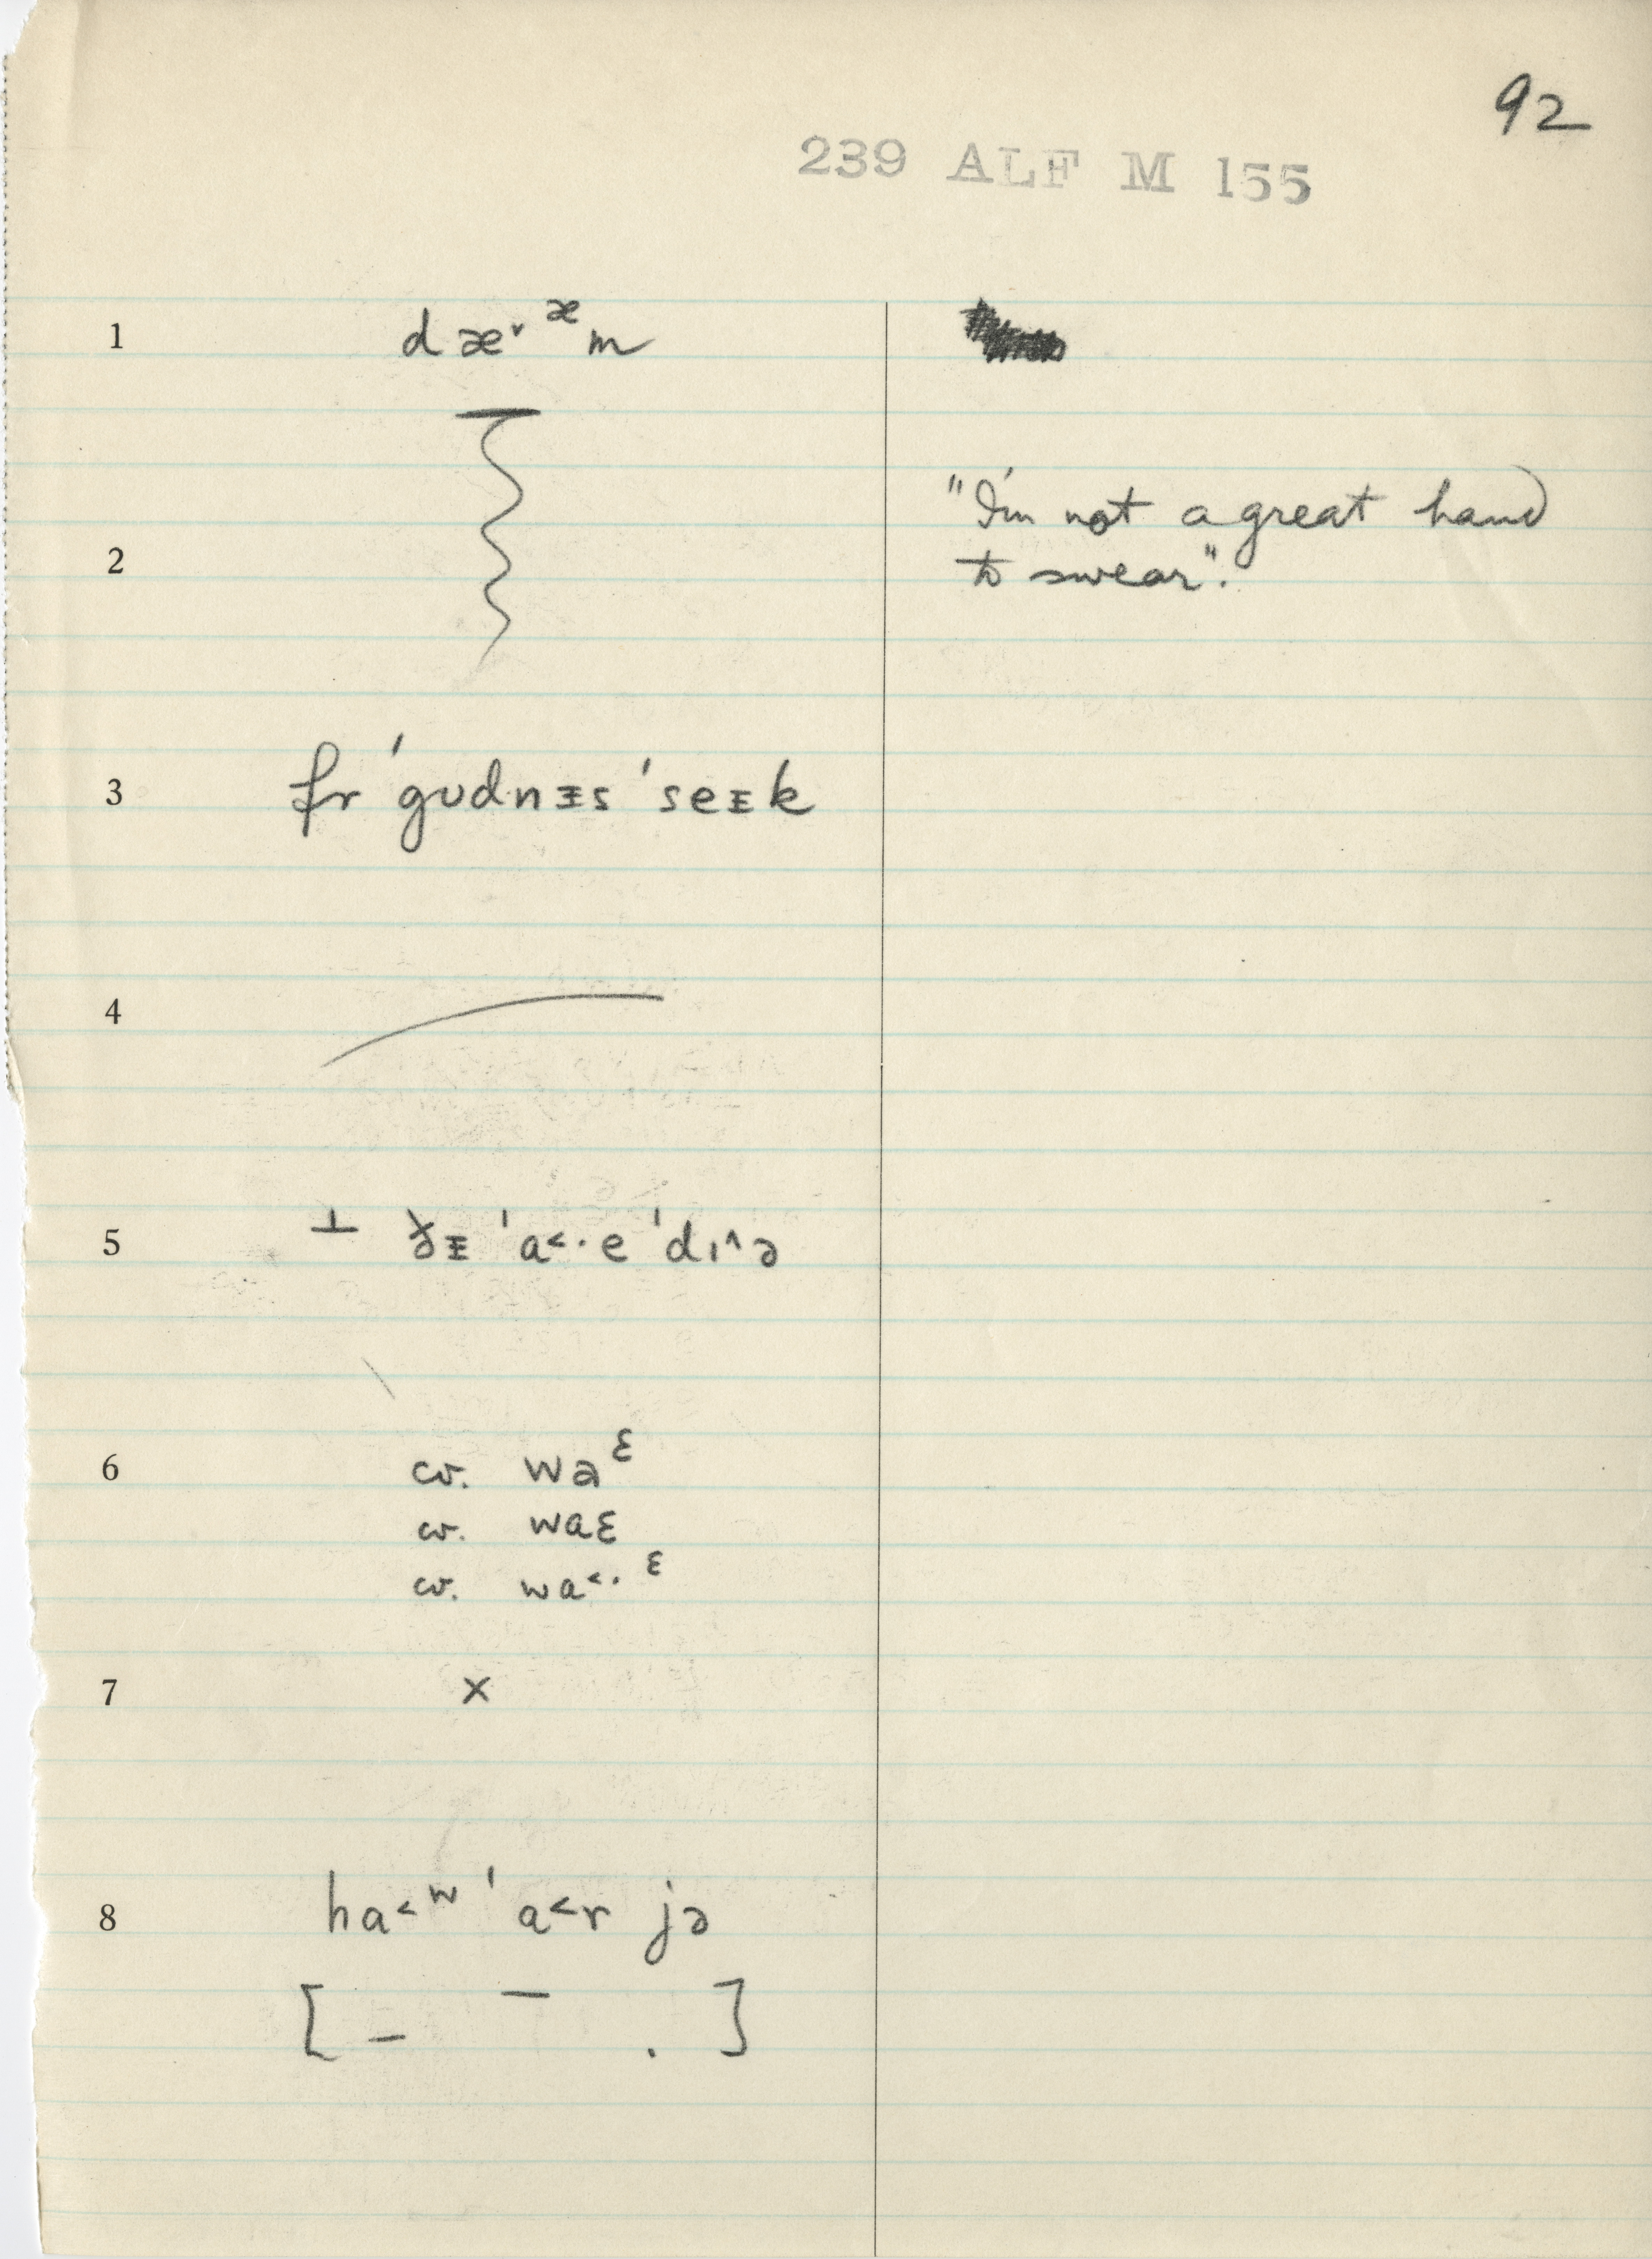 92
239 ALF M 155
1 dæ˅ᵆm
2 "I'm not a great hand
to swear".
3 fr ˈgʊdnᵻs ˈseɪk
4
5 ⊥ ðᵻ ˈa˂·e ˈdɪ^ə
6 cv. waᵋ
cv. waɛ
cv. wa˂·ᵋ
7 ×
8 ha˂ʷ ˈa˂r jə
[ – – . ]